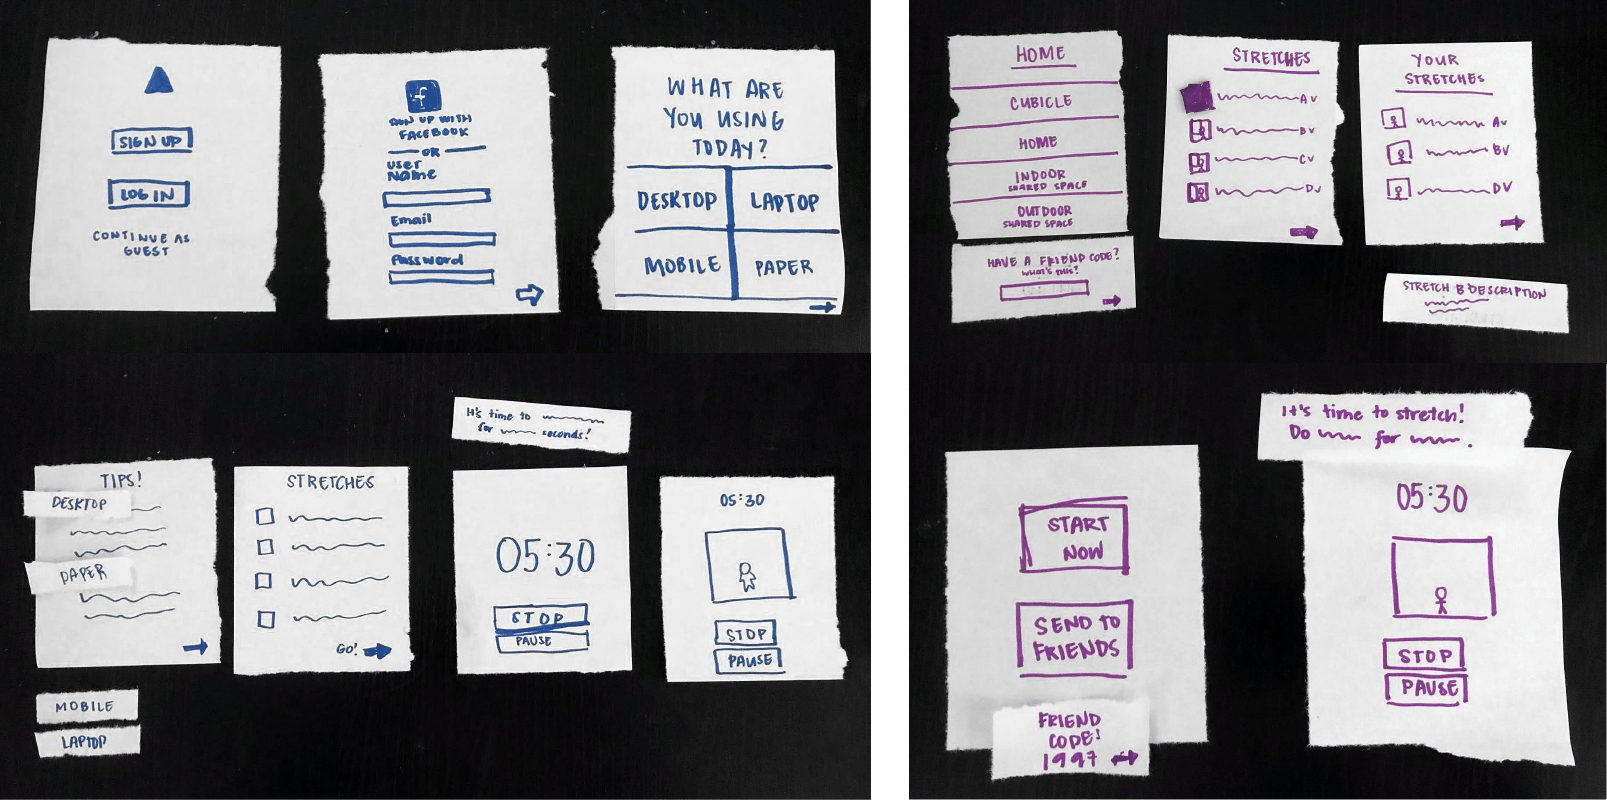 SIGN UP
LOG IN
CONTINUE AS
GUEST
f
SIGN UP WITH
FACEBOOK
OR
USER
Name
Email
Password
WHAT ARE
YOU USING
TODAY?
DESKTOP
LAPTOP
MOBILE
PAPER
TIPS!
DESKTOP
PAPER
MOBILE
LAPTOP
STRETCHES
GO!
It's time to
for seconds!
05:30
STOP
PAUSE
05:30
STOP
PAUSE
HOME
CUBICLE
HOME
INDOOR
SHARED SPACE
OUTDOOR
SHARED SPACE
HAVE A FRIEND CODE?
WHAT'S THIS?
STRETCHES
A v
B v
C v
D v
YOUR
STRETCHES
A v
B v
D v
STRETCH B DESCRIPTION
START
NOW
SEND to
FRIENDS
FRIEND
CODE!
1997
It's time to stretch!
Do for .
05:30
STOP
PAUSE